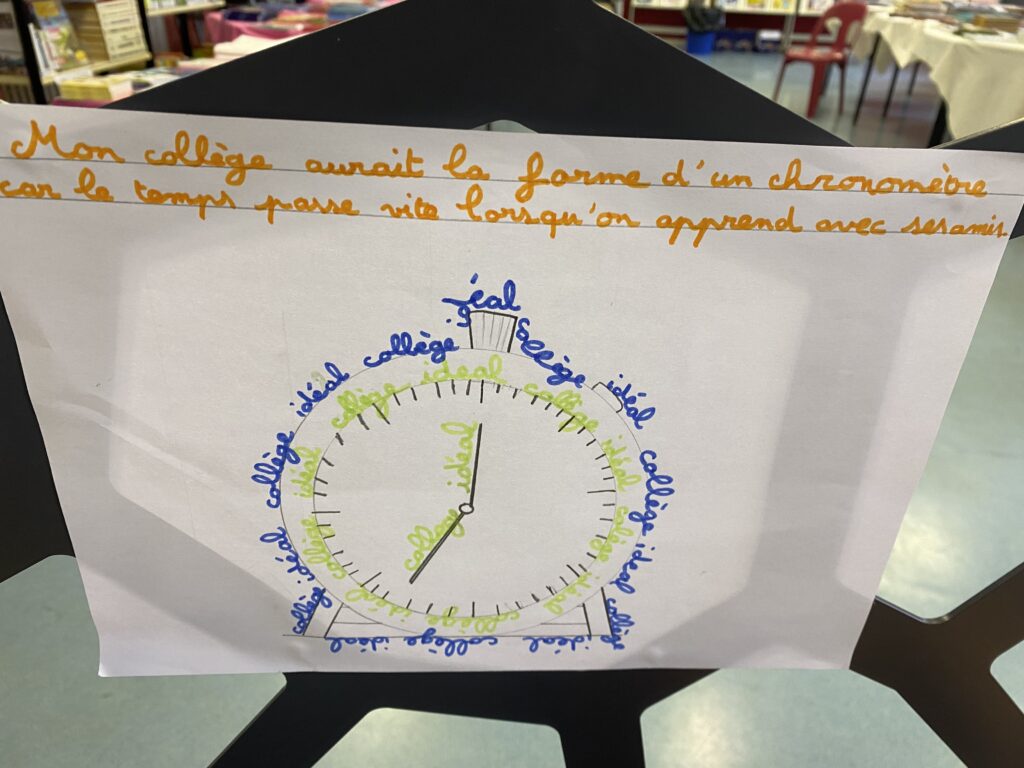 Mon collège aurait la forme d'un chronomètre
car le temps passe vite lorsqu'on apprend avec ses amis.
idéal
collège idéal collège idéal collège idéal collège idéal collège idéal collège idéal collège idéal collège
collège idéal collège idéal collège idéal collège idéal collège idéal collège idéal
idéal
collège